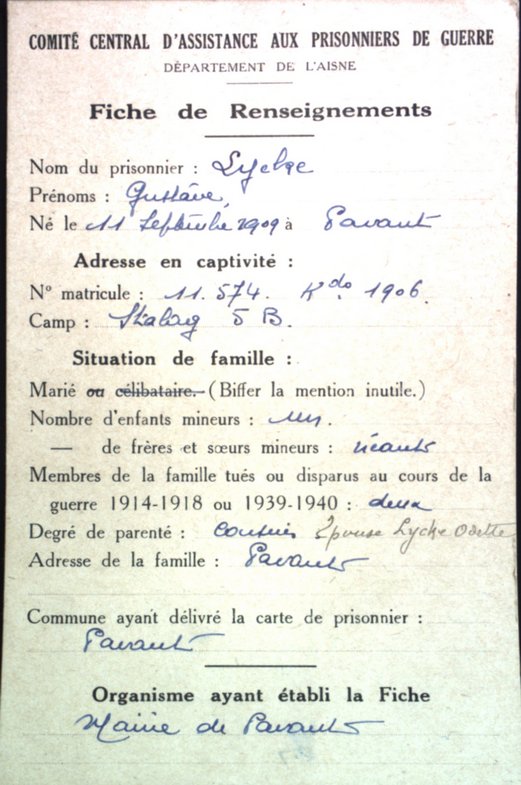 COMITÉ CENTRAL D'ASSISTANCE AUX PRISONNIERS DE GUERRE
DÉPARTEMENT DE L'AISNE
Fiche de Renseignements
Nom du prisonnier : Lyche
Prénoms : Gustave
Né le 11 Septembre 1909 à Pavant
Adresse en captivité :
N° matricule : 11.574. Kdo 1906.
Camp : Stalag 5 B.
Situation de famille :
Marié ou célibataire. (Biffer la mention inutile.)
Nombre d'enfants mineurs : un.
— de frères et sœurs mineurs : néant
Membres de la famille tués ou disparus au cours de la
guerre 1914-1918 ou 1939-1940 : deux
Degré de parenté : cousins Epouse Lyche Odette
Adresse de la famille : Pavant
Commune ayant délivré la carte de prisonnier :
Pavant
Organisme ayant établi la Fiche
Mairie de Pavant